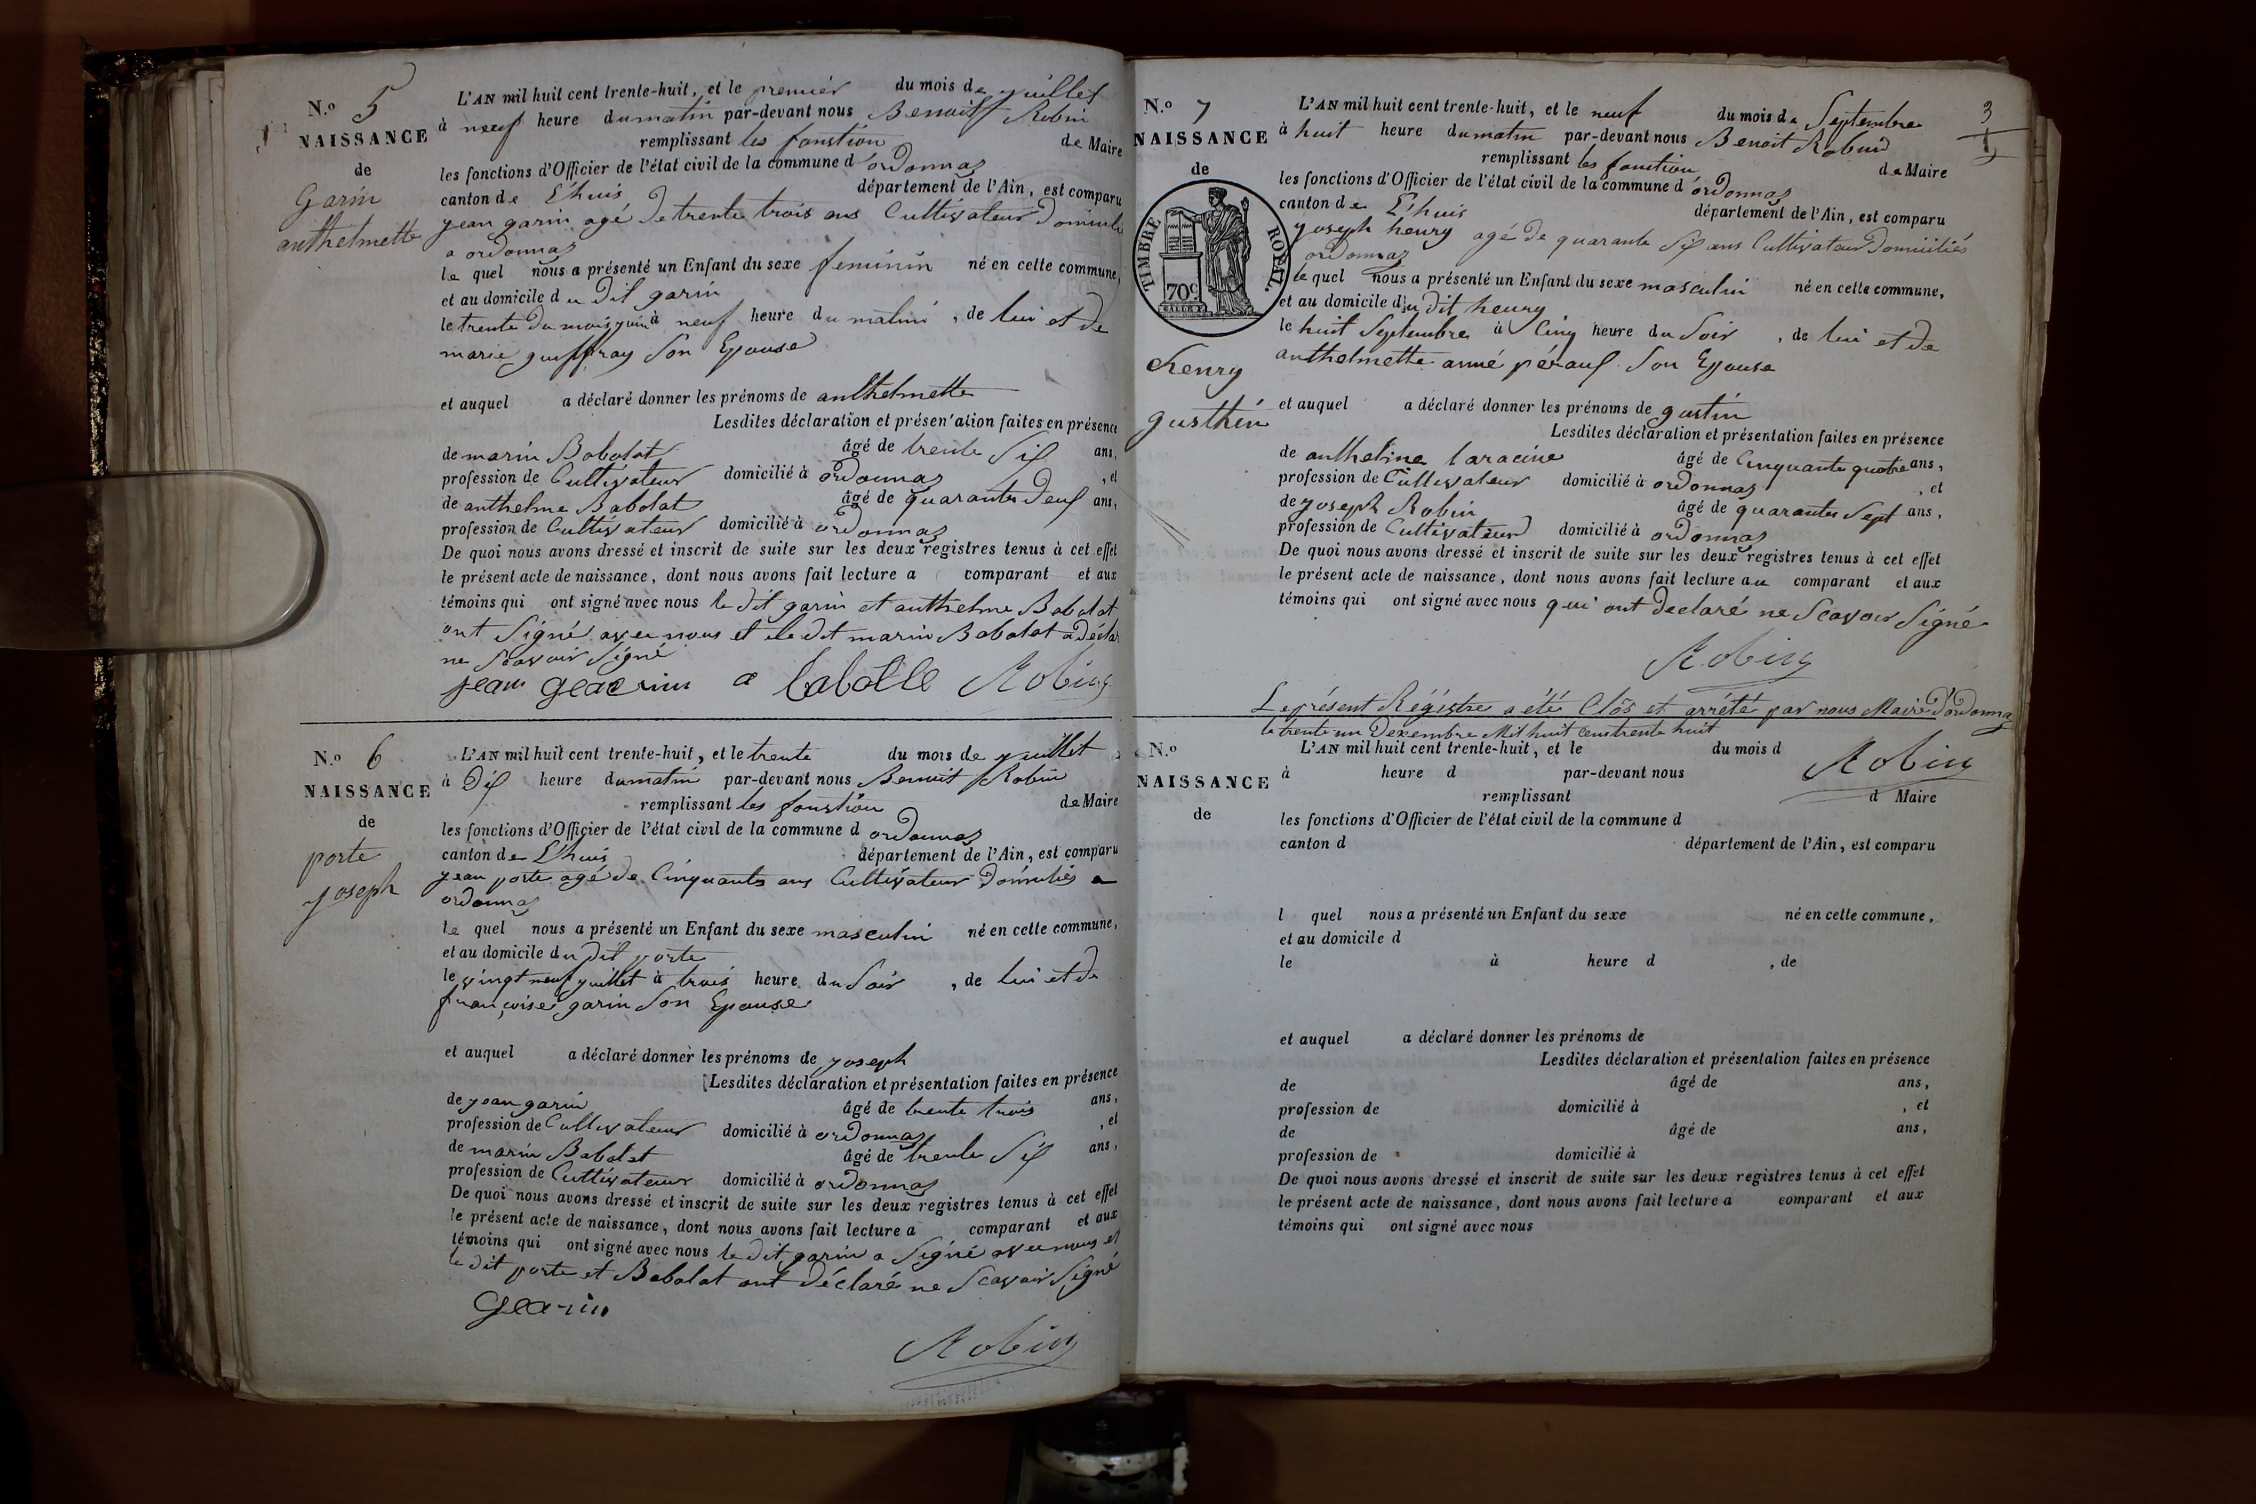 N.o 5
NAISSANCE
de
Garin
anthelmette
L'AN mil huit cent trente-huit, et le premier du mois de juillet
à neuf heure du matin par-devant nous Benoit Robin
remplissant les fonstion de Maire
les fonctions d'Officier de l'état civil de la commune d'ordonnas
canton de L'huis département de l'Ain, est comparu
jean garin agé de trente trois ans Cultivateur Domicilié
a ordonnas
le quel nous a présenté un Enfant du sexe feminin né en cette commune,
et au domicile du Dit garin
le trente du mois juin à neuf heure du matin, de lui et de
marie guiffray Son Epouse
et auquel a déclaré donner les prénoms de anthelmette
Lesdites déclaration et présen'ation faites en présence
de marin Babolat âgé de trente Six ans,
profession de Cultivateur domicilié à ordonnas, et
de anthelme Babolat âgé de quarante Deux ans,
profession de Cultivateur domicilié à ordonnas
De quoi nous avons dressé et inscrit de suite sur les deux registres tenus à cet effet
le présent acte de naissance, dont nous avons fait lecture a comparant et aux
témoins qui ont signé avec nous le Dit garin et anthelme Babolat
ont Signé avec nous et le Dit marin Babolat a Décla
ne Scavoir Signé
jean gearin a babolle Robin
N.o 6
NAISSANCE
de
porte
joseph
L'AN mil huit cent trente-huit, et le trente du mois de juillet
à Dix heure du matin par-devant nous Benoit Robin
remplissant les fonstion de Maire
les fonctions d'Officier de l'état civil de la commune d ordonnas
canton de L'huis département de l'Ain, est comparu
jean porte agé de Cinquante ans Cultivateur Domicilié a
ordonnas
le quel nous a présenté un Enfant du sexe masculin né en cette commune,
et au domicile du Dit porte
le vingt neuf juillet à trois heure du Soir, de lui et de
françoise garin Son Epouse
et auquel a déclaré donner les prénoms de joseph
Lesdites déclaration et présentation faites en présence
de jean garin âgé de trente trois ans,
profession de Cultivateur domicilié à ordonnas, et
de marin Babolat âgé de trente Six ans,
profession de Cultivateur domicilié à ordonnas
De quoi nous avons dressé et inscrit de suite sur les deux registres tenus à cet effet
le présent acte de naissance, dont nous avons fait lecture a comparant et aux
témoins qui ont signé avec nous le Dit garin a Signé avec nous et
le Dit porte et Babolat ont Déclaré ne Scavoir Signé
gearin
Robin
3
N.o 7
NAISSANCE
de
TIMBRE ROYAL
70c
henry
gusthin
L'AN mil huit cent trente-huit, et le neuf du mois de Septembre
à huit heure du matin par-devant nous Benoit Robin
remplissant les fonstion de Maire
les fonctions d'Officier de l'état civil de la commune d'ordonnas
canton de L'huis département de l'Ain, est comparu
joseph henry agé de quarante Six ans Cultivateur Domicilié
ordonnas
le quel nous a présenté un Enfant du sexe masculin né en cette commune,
et au domicile du Dit henry
le huit Septembre à Cinq heure du Soir, de lui et de
anthelmette Son Epouse
et auquel a déclaré donner les prénoms de gustin
Lesdites déclaration et présentation faites en présence
de anthelme laracine âgé de Cinquante quatre ans,
profession de Cultivateur domicilié à ordonnas, et
de joseph Robin âgé de quarante Sept ans,
profession de Cultivateur domicilié à ordonnas
De quoi nous avons dressé et inscrit de suite sur les deux registres tenus à cet effet
le présent acte de naissance, dont nous avons fait lecture au comparant et aux
témoins qui ont signé avec nous qui ont Declaré ne Scavoir Signé
Robin
Le présent Régistre a été Clôs et arrété par nous Maire D'ordonnas
le trente un Dexembre Mil huit Cens trente huit
Robin
N.o
NAISSANCE
de
L'AN mil huit cent trente-huit, et le du mois d
à heure d par-devant nous
remplissant d Maire
les fonctions d'Officier de l'état civil de la commune d
canton d département de l'Ain, est comparu
l quel nous a présenté un Enfant du sexe né en cette commune,
et au domicile d
le à heure d, de
et auquel a déclaré donner les prénoms de
Lesdites déclaration et présentation faites en présence
de âgé de ans,
profession de domicilié à, et
de âgé de ans,
profession de domicilié à
De quoi nous avons dressé et inscrit de suite sur les deux registres tenus à cet effet
le présent acte de naissance, dont nous avons fait lecture a comparant et aux
témoins qui ont signé avec nous